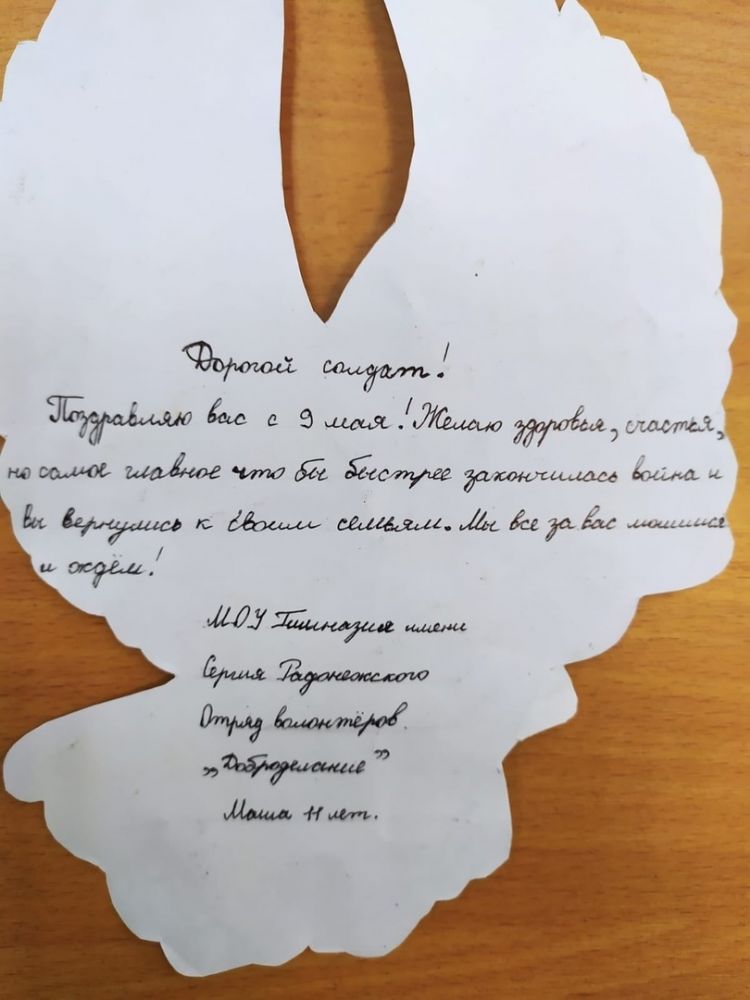 Дорогой солдат!
Поздравляю вас с 9 мая! Желаю здоровья, счастья,
но самое главное что бы быстрее закончилась война и
вы вернулись к своим семьям. Мы все за вас молимся
и ждём!
МОУ Гимназия имени
Сергия Радонежского
Отряд волонтёров.
„Доброделание”
Маша 11 лет.